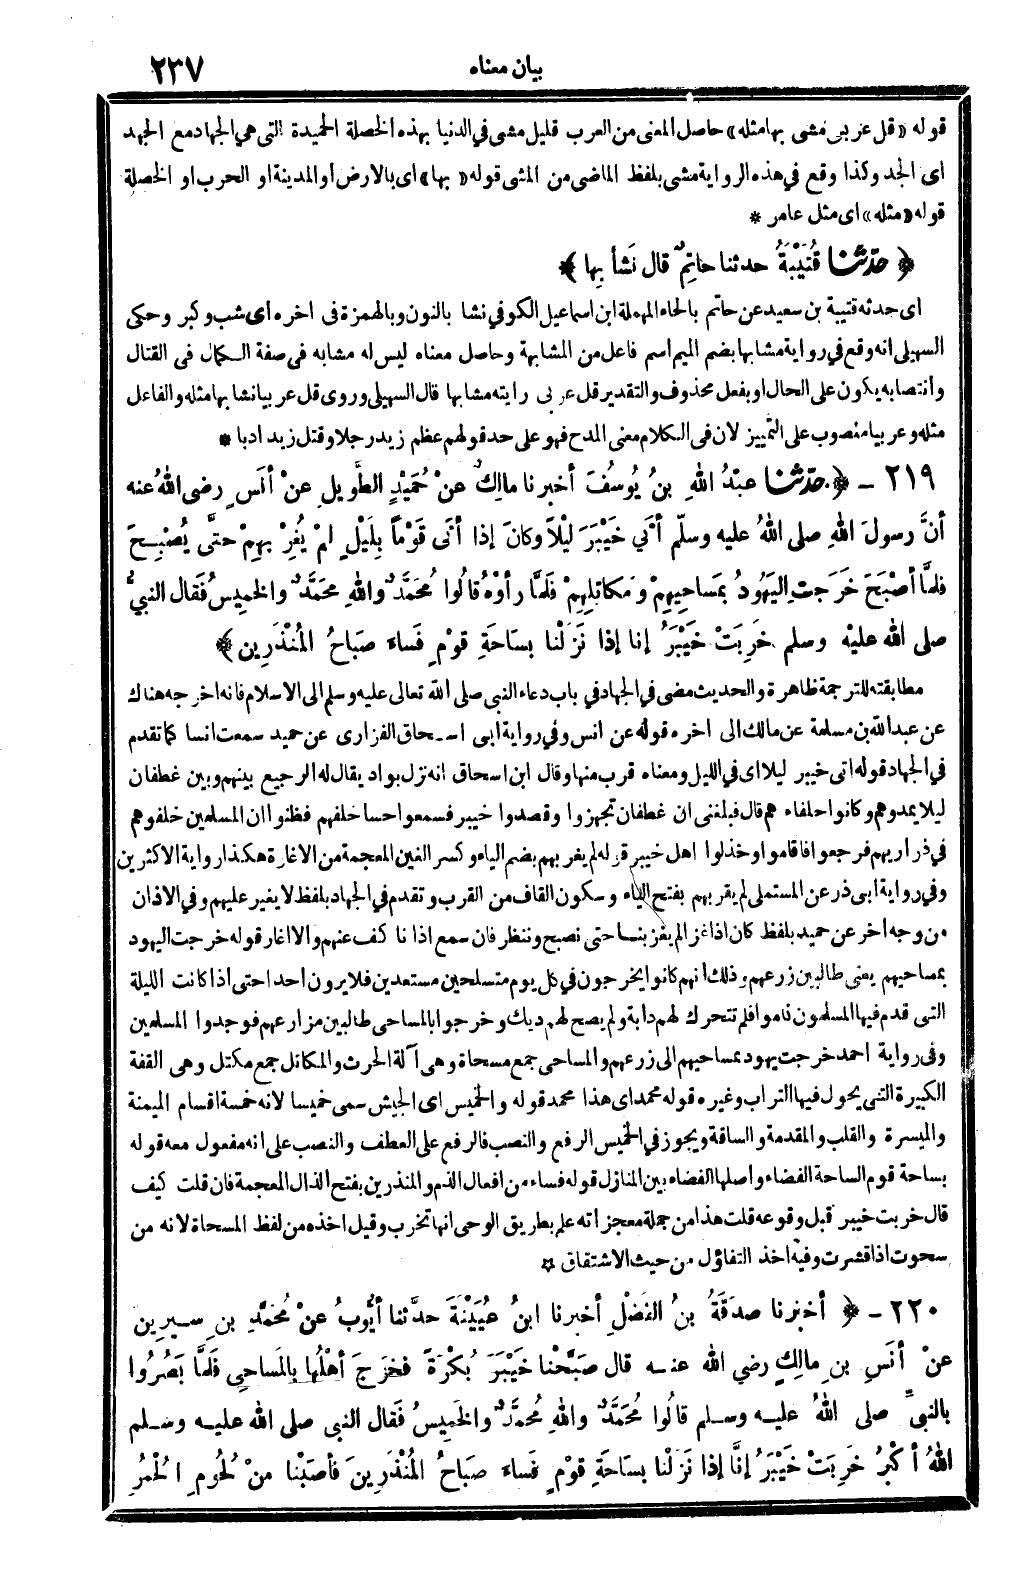 بيان معناه
٢٣٧
قوله «قل عربى مشى بها مثله» حاصل المعنى من العرب قليل مشى فى الدنيا بهذه الخصلة الحميدة التى هى الجهاد مع الجهد
اى الجد وكذا وقع فى هذه الرواية مشى بلفظ الماضى من المشى قوله «بها» اى بالارض او المدينة او الحرب او الخصلة
قوله «مثله» اى مثل عامر *
﴿ حدّثنا قُتَيْبَةُ حدثنا حاتِمٌ قال نَشَأَ بِها ﴾
اى حدثه قتيبة بن سعيد عن حاتم بالحاء المهملة ابن اسماعيل الكوفى نشا بالنون وبالهمزة فى اخره اى شب وكبر وحكى
السهيلى انه وقع فى رواية مشابها بضم الميم اسم فاعل من المشابهة وحاصل معناه ليس له مشابه فى صفة الكمال فى القتال
وانتصابه يكون على الحال او بفعل محذوف والتقدير قل عربى رايته مشابها قال السهيلى وروى قل عربيا نشا بها مثله والفاعل
مثله وعربيا منصوب على التمييز لان فى الكلام معنى المدح فهو على حد قولهم عظم زيد رجلا وقتل زيد ادبا *
٢١٩ - ﴿ حدّثنا عبْدُ اللهِ بنُ يُوسُفَ أخبرنا مالِكٌ عنْ حُمَيْدٍ الطَّوِيلِ عنْ أنَسٍ رضى اللهُ عنه
أنَّ رسولَ اللهِ صلى اللهُ عليه وسلّم أتَى خَيْبَرَ لَيْلاً وكانَ إذا أتَى قَوْماً بِلَيْلٍ لمْ يُغِرْ بِهِمْ حتَّى يُصْبِحَ
فلمَّا أصْبَحَ خَرَجَتِ اليَهُودُ بمَساحِيهِمْ ومَكاتِلِهِمْ فَلَمَّا رأوْهُ قالُوا مُحَمَّدٌ واللهِ محَمَّدٌ والخَمِيسُ فَقال النبىُّ
صلى الله عليْه وسلم خَرِبَتْ خَيْبَرُ إنا إذا نَزَلْنا بسَاحَةِ قوْمٍ فَساءَ صَبَاحُ المُنْذَرِين ﴾
مطابقته للترجمة ظاهرة والحديث مضى فى الجهاد فى باب دعاء النبى صلى الله تعالى عليه وسلم الى الاسلام فانه اخرجه هناك
عن عبدالله بن مسلمة عن مالك الى اخره قوله عن انس وفى رواية ابى اسحاق الفزارى عن حميد سمعت انسا كما تقدم
فى الجهاد قوله اتى خيبر ليلا اى فى الليل ومعناه قرب منها وقال ابن اسحاق انه نزل بواد يقال له الرجيع بينهم وبين غطفان
ليلا يمدوهم وكانوا حلفاء هم قال فبلغنى ان غطفان تجهزوا وقصدوا خيبر فسمعوا حسا خلفهم فظنوا ان المسلمين خلفوهم
فى ذراريهم فرجعوا فاقاموا وخذلوا اهل خيبر قوله لم يغر بهم بضم الياء وكسر الغين المعجمة من الاغارة هكذا رواية الاكثرين
وفى رواية ابى ذر عن المستملى لم يقربهم بفتح الياء وسكون القاف من القرب وتقدم فى الجهاد بلفظ لا يغير عليهم وفى الاذان
من وجه آخر عن حميد بلفظ كان اذا غزا لم يغز بنا حتى نصبح وننظر فان سمع اذانا كف عنهم والا اغار قوله خرجت اليهود
بمساحيهم يعنى طالبين زرعهم وذلك انهم كانوا يخرجون فى كل يوم متسلحين مستعدين فلا يرون احدا حتى اذا كانت الليلة
التى قدم فيها المسلمون ناموا فلم تتحرك لهم دابة ولم يصح لهم ديك وخرجوا بالمساحى طالبين مزارعهم فوجدوا المسلمين
وفى رواية احمد خرجت يهود بمساحيهم الى زرعهم والمساحى جمع مسحاة وهى آلة الحرث والمكاتل جمع مكتل وهى القفة
الكبيرة التى يحول فيها التراب وغيره قوله محمد اى هذا محمد قوله والخميس اى الجيش سمى خميسا لانه خمسة اقسام الميمنة
والميسرة والقلب والمقدمة والساقة ويجوز فى الخميس الرفع والنصب فالرفع على العطف والنصب على انه مفعول معه قوله
بساحة قوم الساحة الفضاء واصلها الفضاء بين المنازل قوله فساء من افعال الذم والمنذرين بفتح الذال المعجمة فان قلت كيف
قال خربت خيبر قبل وقوعه قلت هذا من جملة معجزاته علم بطريق الوحى انها تخرب وقيل اخذه من لفظ المسحاة لانه من
سحوت اذا قشرت وفيه اخذ التفاؤل من حيث الاشتقاق *
٢٢٠ - ﴿ أخبرنا صدَقَةُ بنُ الفَضْلِ أخبرنا ابنُ عُيَيْنَةَ حدَّثنا أيُّوبُ عنْ مُحَمَّدِ بنِ سِيرِين
عنْ أنَسِ بنِ مالِكٍ رضي الله عنه قال صَبَّحْنا خَيْبَرَ بُكْرَةً فخَرَجَ أهْلُها بالمَساحِى فَلَمَّا بَصُرُوا
بالنبىِّ صلى اللهُ عليه وسلم قالُوا مُحَمَّدٌ واللهِ مُحمَّدٌ والخَمِيسُ فَقال النبى صلى الله عليه وسلم
اللهُ أكْبَرُ خَرِبَتْ خَيْبَرُ إنَّا إذا نَزَلْنا بسَاحَةِ قوْمٍ فَساءَ صَبَاحُ المُنْذَرِينَ فأصَبْنا منْ لُحُومِ الحُمُرِ